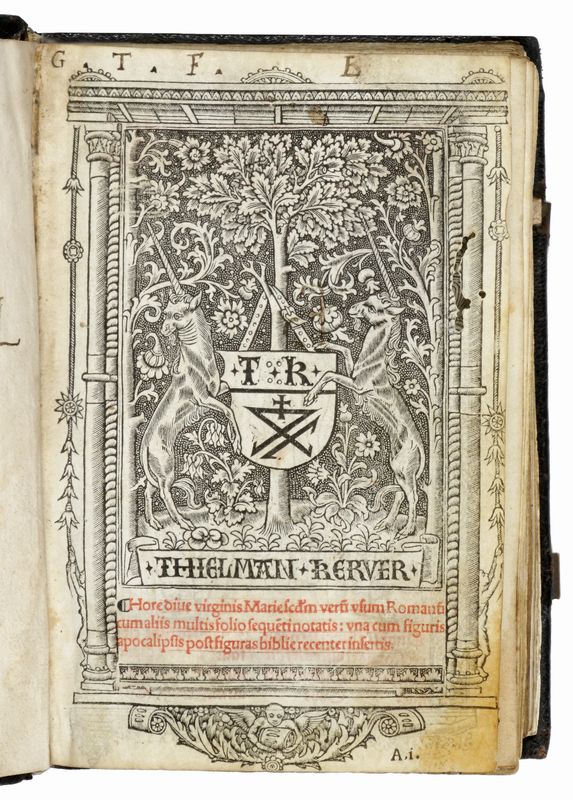 G. T. F. E
T R
THIELMAN KERVER
Hore diue virginis Marie scd̄m verū vsum Romanū
cum aliis multis folio sequēti notatis: vna cum figuris
apocalipsis post figuras biblie recenter insertis.
A.i.